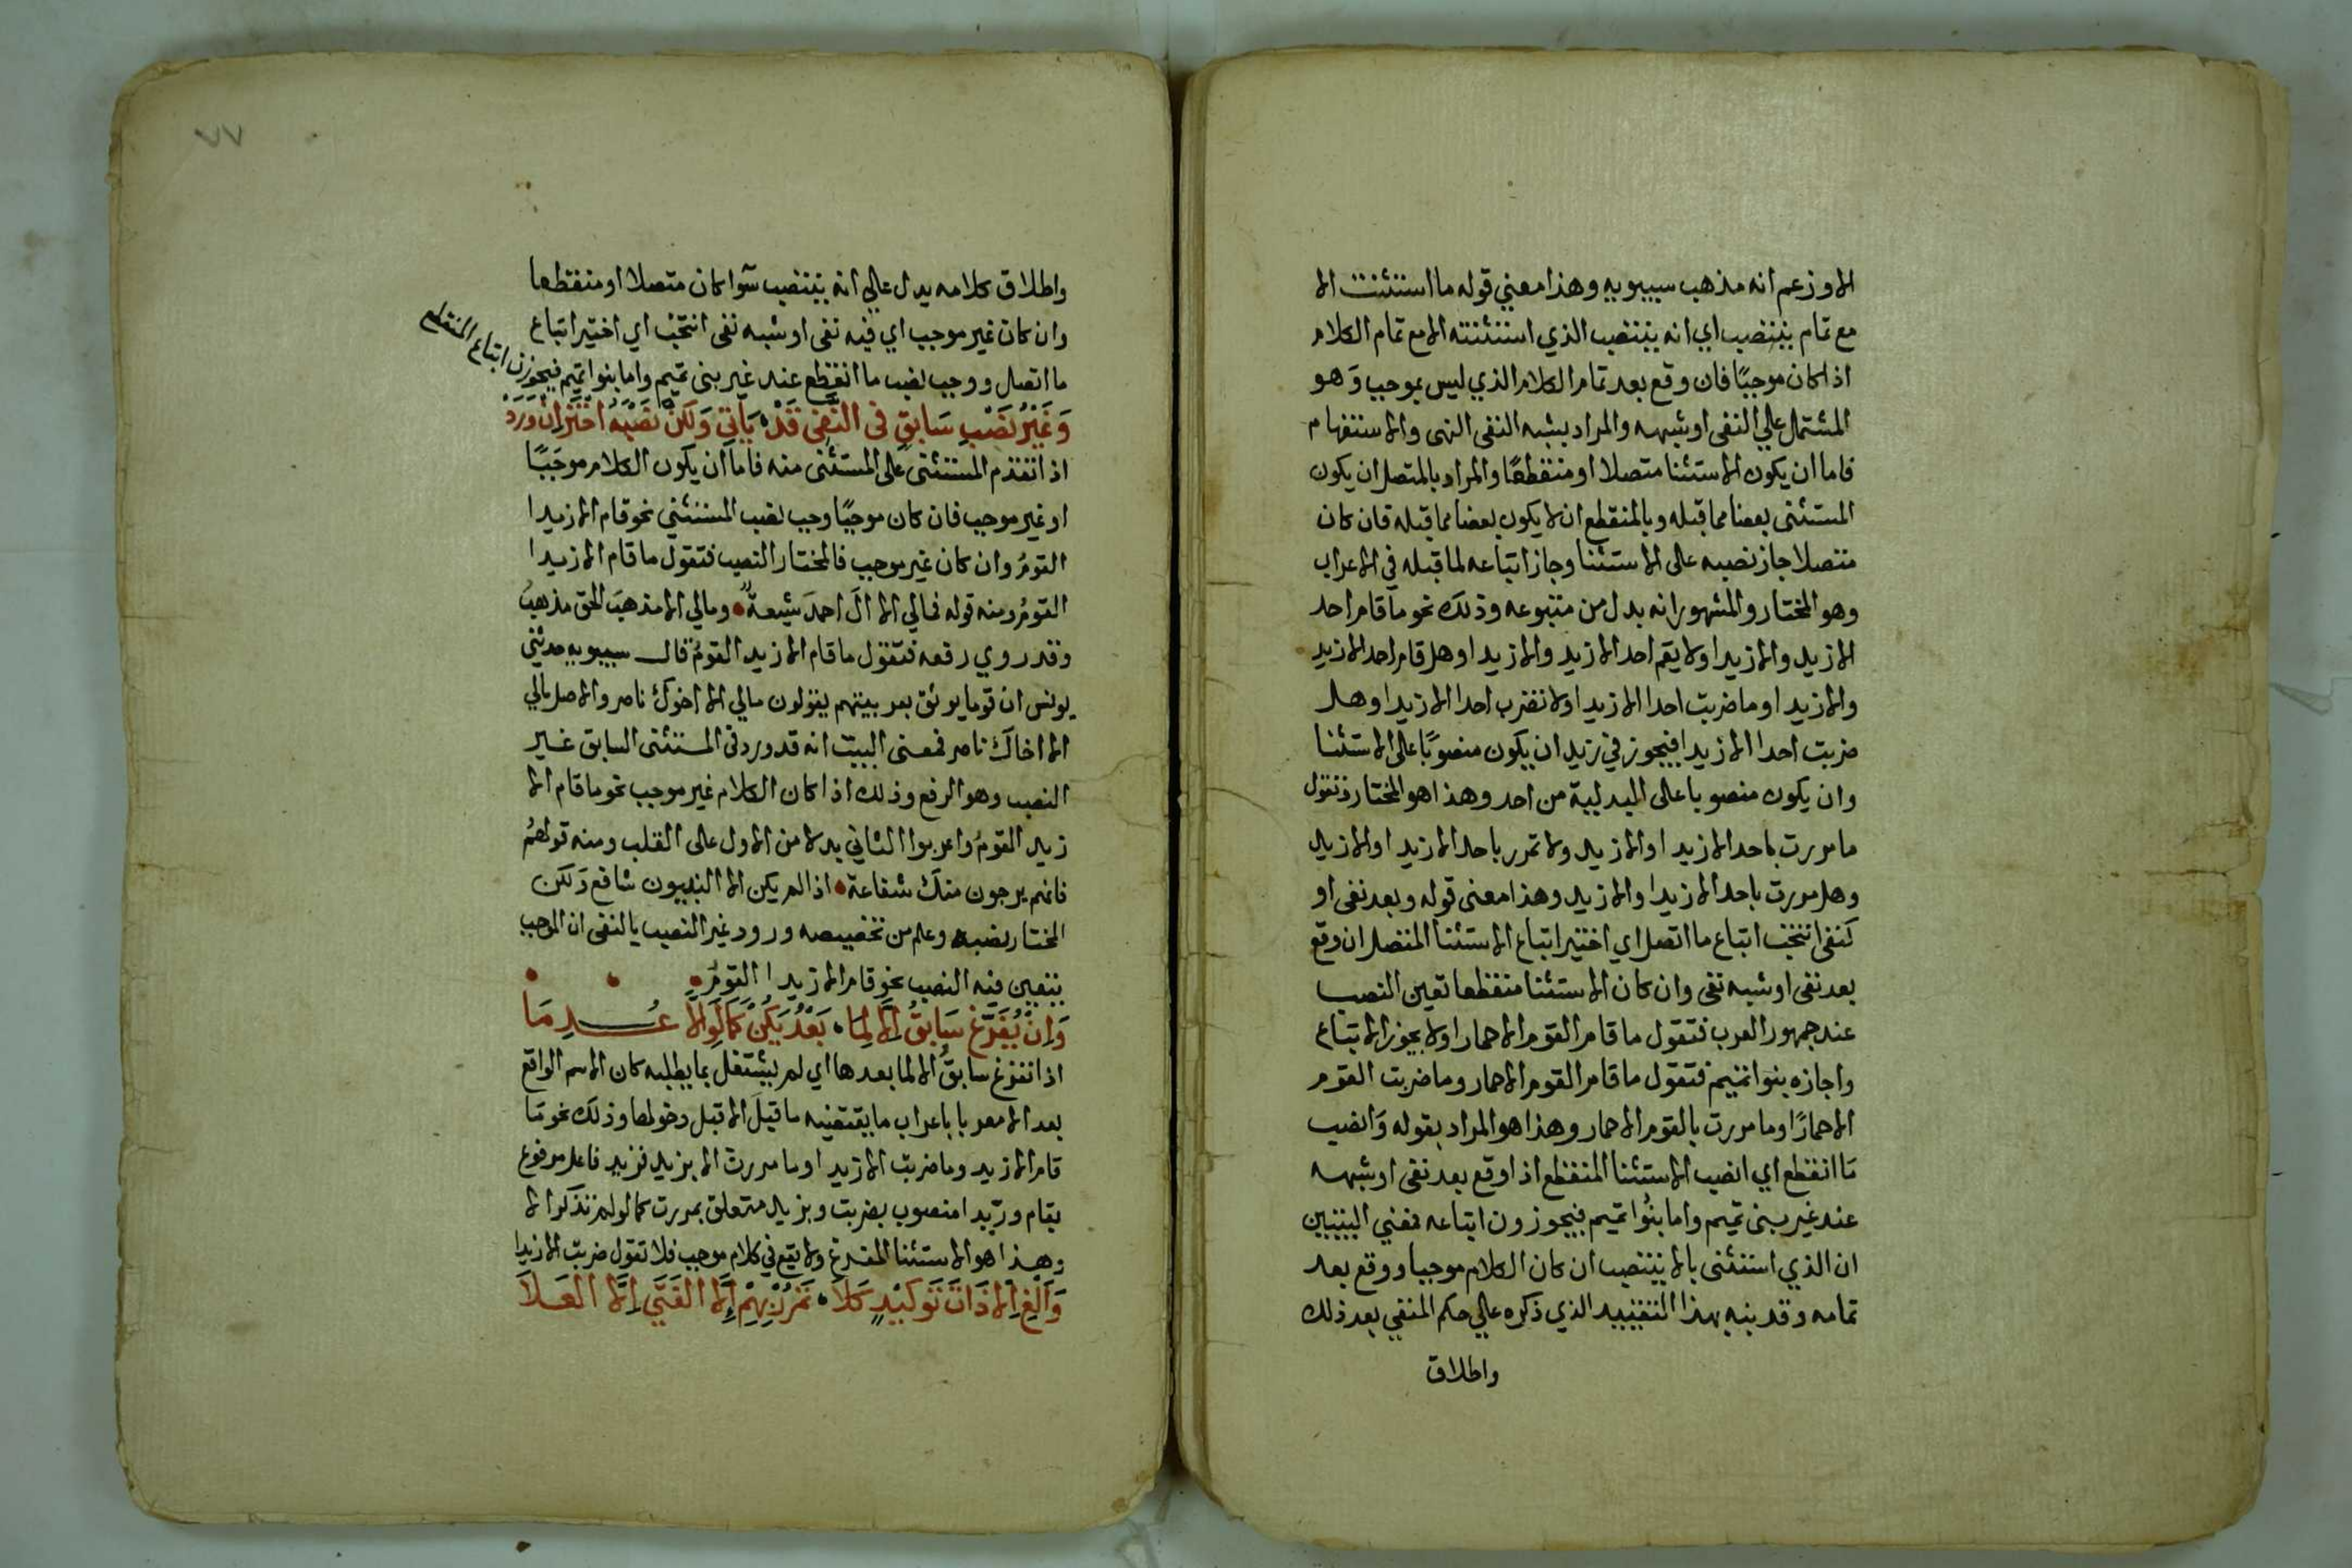 الا وزعم انه مذهب سيبويه وهذا معني قوله ما استثنت الا
مع تمام ينتصب اي انه ينتصب الذي استثنته الا مع تمام الكلام
اذا كان موجبًا فان وقع بعد تمام الكلام الذي ليس بموجب وَهو
المشتمل علي النفى او شبهه والمراد بشبه النفى النهى والاستفهام
فاما ان يكون الاستثنا متصلا او منقطعًا والمراد بالمتصل ان يكون
المستثنى بعضا مما قبله وبالمنقطع ان لا يكون بعضا مما قبله فان كان
متصلا جاز نصبه على الاستثنا وجاز اتباعه لما قبله في الاعراب
وهو المختار والمشهور انه بدل من متبوعه وذلك نحو ما قام احد
الا زيد والا زيدا ولا يقم احد الا زيد والا زيدا وهل قام احد الا زيد
والا زيدا وما ضربت احدا الا زيدا ولا تضرب احدا الا زيدا وهل
ضربت احدا الا زيدا فيجوز في زيدا ان يكون منصوبًا على الاستثنا
وان يكون منصوبا على البدلية من احد وهذا هو المختار وتقول
ما مررت باحد الا زيدا والا زيد ولا تمرر باحد الا زيدا والا زيد
وهل مررت باحد الا زيدا والا زيد وهذا معنى قوله وبعد نفى او
كنفى انتخب اتباع ما اتصل اي اختير اتباع الاستثنا المتصل ان وقع
بعد نفى او شبه نفى وان كان الاستثنا منقطعا تعين النصب
عند جمهور العرب فتقول ما قام القوم الا حمارا ولا يجوز الاتباع
واجازه بنوا تميم فتقول ما قام القوم الا حمار وما ضربت القوم
الا حمارًا وما مررت بالقوم الا حمار وهذا هو المراد بقوله وَانصب
مَا انقطع اي انصب الاستثنا المنقطع اذا وقع بعد نفى او شبهه
عند غير بنى تميم واما بنُوا تميم فيجوزون اتباعه فمعني البيتين
ان الذي استثنى بالا ينتصب ان كان الكلام موجبا ووقع بعد
تمامه وقد بنبه بهذا التقييد الذي ذكره علي حكم النفي بعد ذلك
واطلاق
٧٧
واطلاق كلامه يدل علي انه ينتصب سوآ كان متصلا او منقطعا
وان كان غير موجب اي فيه نفى او شبه نفى انتخب اي اختير اتباع
ما اتصل ووجب نصب ما انقطع عند غير بنى تميم واما بنوا تميم فيجوزن اتباع المنقطع
وَغَيْرُ نَصْبِ سَابِقٍ في النَّفْيِ قَدْ يَأتِي وَلَكنْ نَصْبَهُ اخْتَرْ اِنْ وَرَدْ
اذا تقدم المستثنى على المستثنى منه فاما ان يكون الكلام موجَبًا
او غير موجب فان كان موجبًا وجب نصب المستثني نحو قام الا زيدا
القومُ وان كان غير موجب فالمختار النصب فتقول ما قام الا زيدا
القومُ ومنه قوله فمالي الا الَ احمدَ شيعةٌ ومالي الا مذهبَ الحق مذهبُ
وقد روي رفعه فتقول ما قام الا زيد القومُ قال سيبويه حدثني
يونس ان قوما يوثق بعربيتهم يقولون مالي الا اخوكَ ناصر والاصل مالي
الا اخاكَ ناصر فمعنى البيت انه قد ورد في المستثنى السابق غير
النصب وهو الرفع وذلك اذا كان الكلام غير موجب نحو ما قام الا
زيد القومُ واعربوا الثاني بدلا من الاول على القلب ومنه قولهُم
فانهم يرجون منكَ شفاعة اذا لم يكن الا النبيون شافع وَلكن
المختار نصبه وعلم من تخصيصه ورود غير النصب بالنفى ان الموجب
يتعين فيه النصب نحو قام الا زيدا القومُ
وَاِنْ يُفَرَّغْ سَابِقٌ اِلَّا لِمَا بَعْدُ يَكُنْ كَمَا لَو اِلَّا عُدِمَا
اذا تفرغ سابقُ الا لما بعدها اي لم يشتغل بما يطلبه كان الاسم الواقع
بعد الا معربا باعراب ما يقتضيه ما قبلَ الا قبل دخولها وذلك نحو مَا
قام الا زيد وما ضربت الا زيدا وما مررت الا بزيد فزيد فاعل مرفوع
بقام وزيدا منصوب بضربت وبزيد متعلق بمررت كما لو لم تذكر الا
وهذا هو الاستثنا المفرغ ولا يقع في كلام موجب فلا تقول ضربت الا زيدا
وَاَلْغِ اِلَّا ذَاتَ تَوكيْدٍ كَلَا تَمْرُرْ بِهِمْ اِلَّا الفَتَي اِلَّا العَلَا